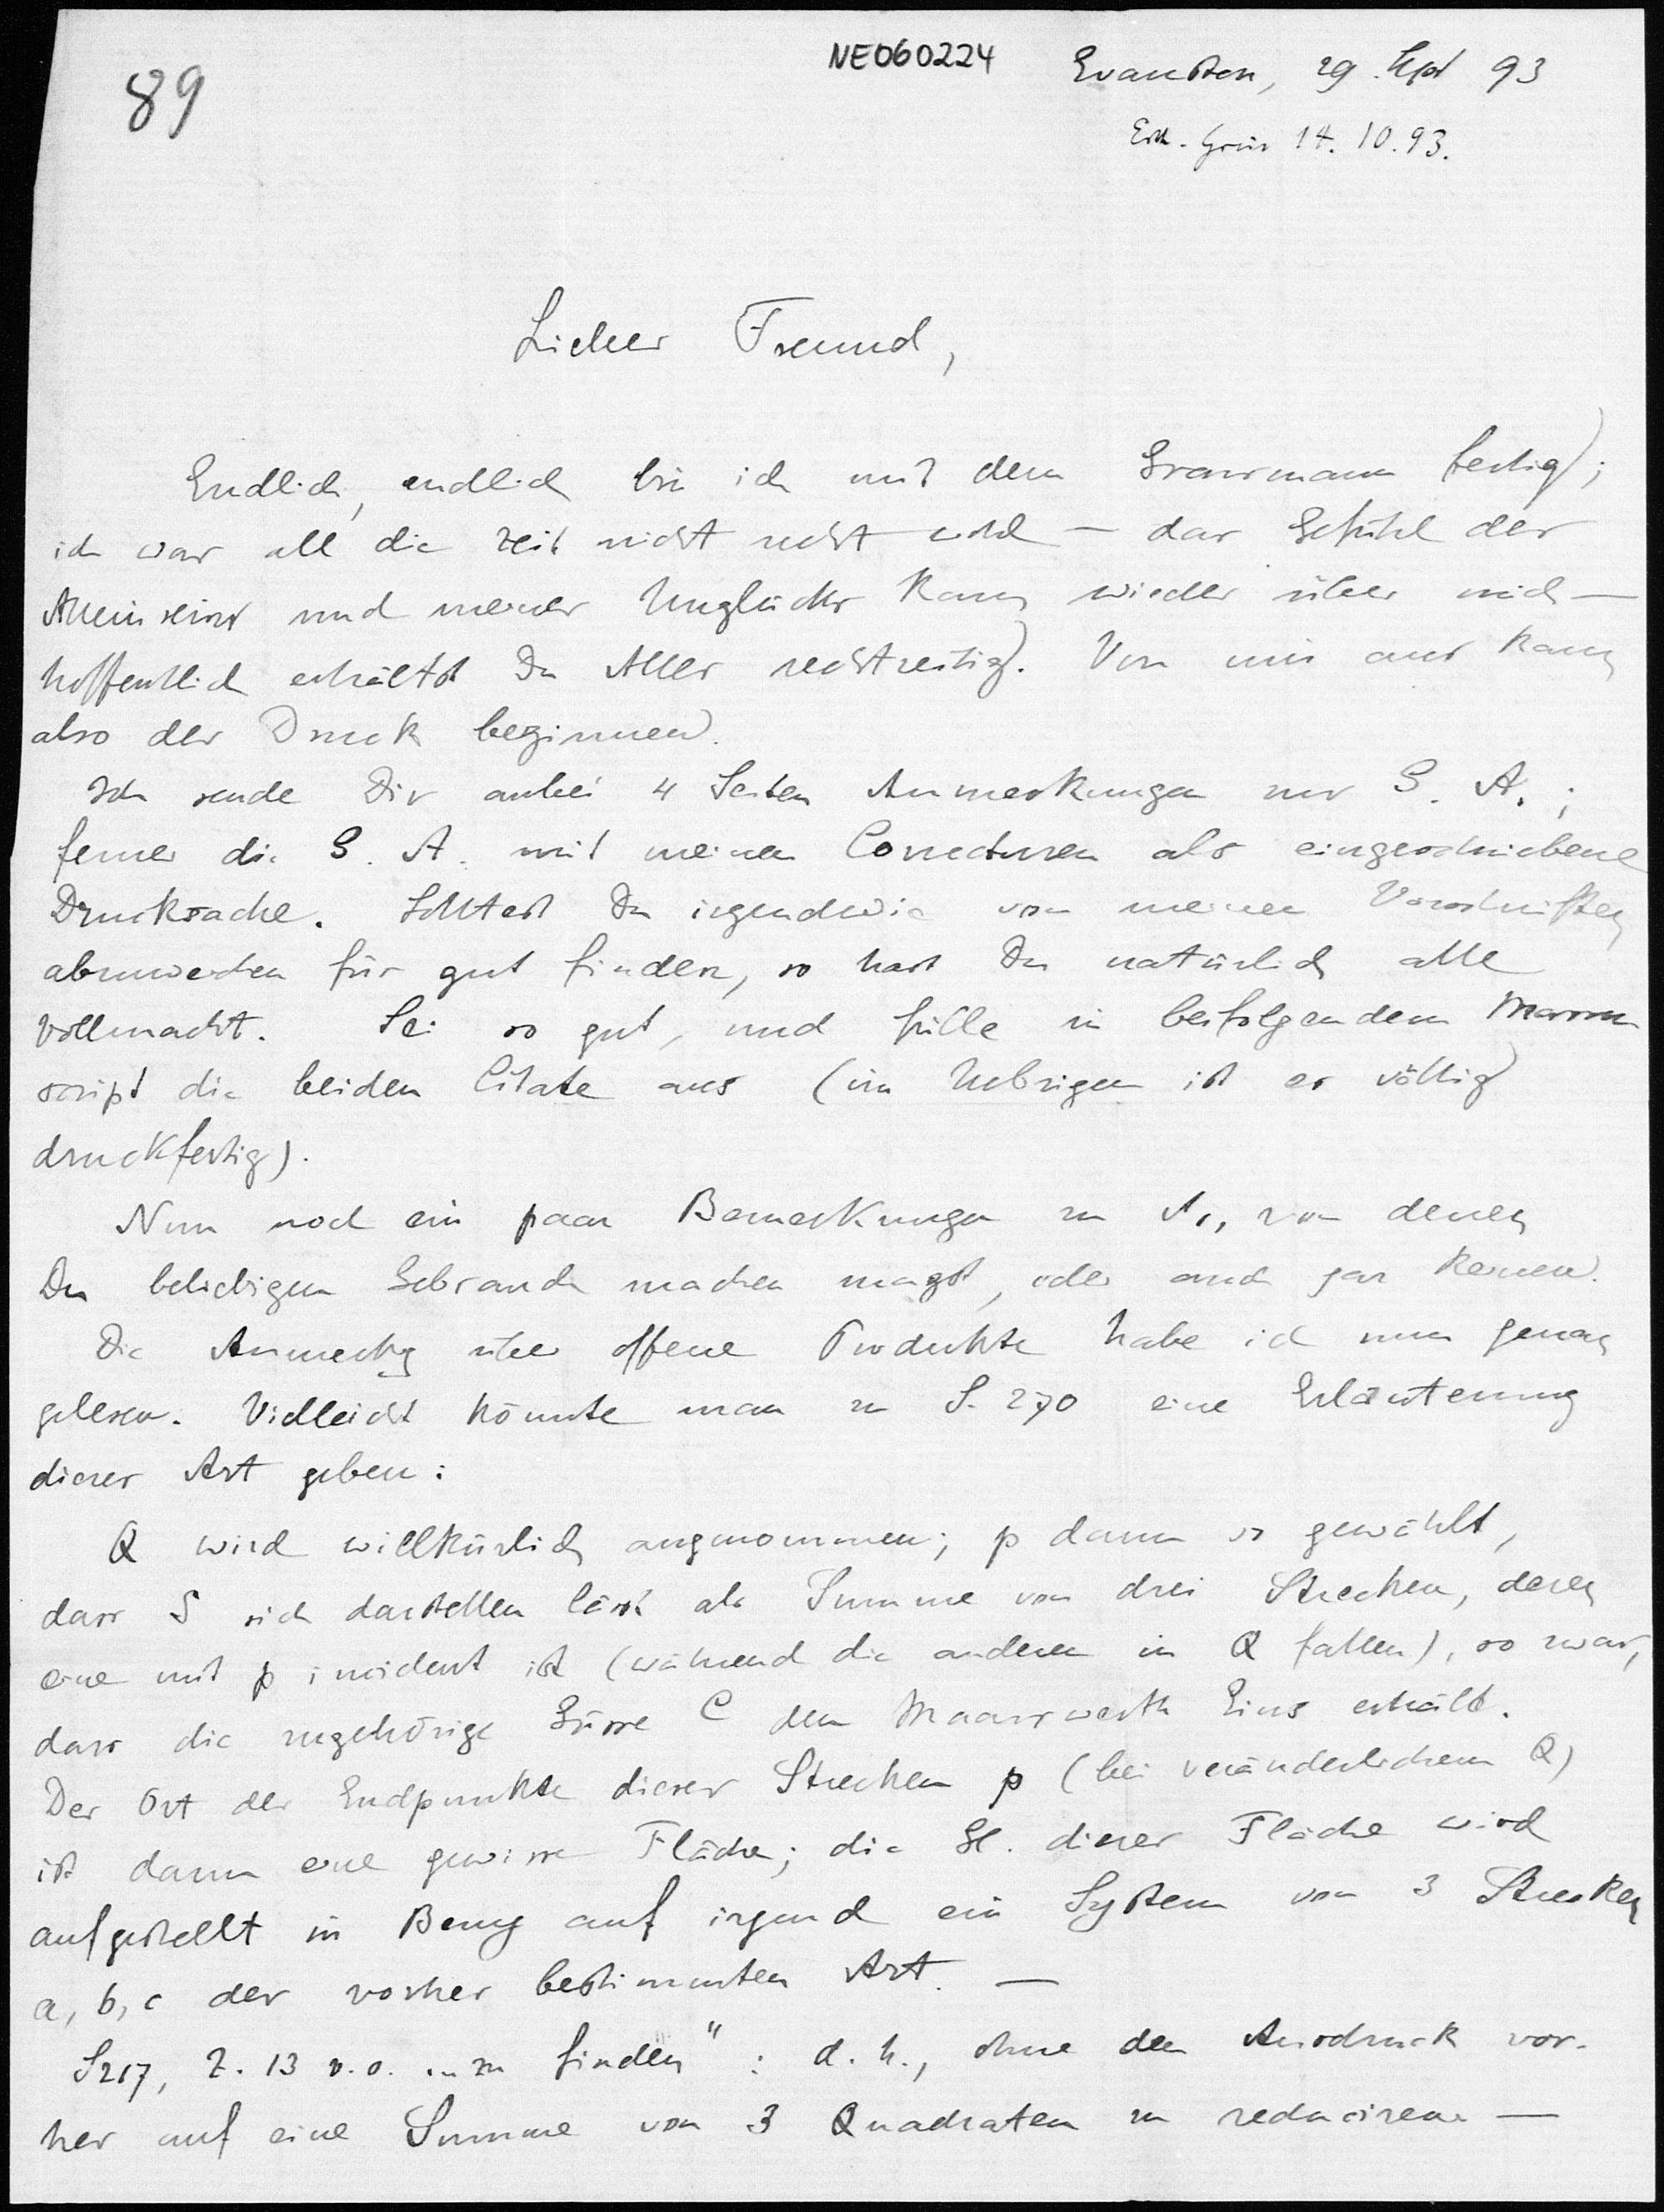 NE060224
89
Evanston, 29. Sept 93
Erh. Grün 14. 10. 93.
Lieber Freund,
Endlich, endlich bin ich mit dem Grassmann fertig;
ich war all die Zeit nicht recht wohl – das Gefühl des
Alleinseins und meines Unglücks kam wieder über mich –
hoffentlich erhältst Du Alles rechtzeitig. Von mir aus kann
also der Druck beginnen.
Ich sende Dir anbei 4 Seiten Anmerkungen zur G. A.;
ferner die G. A. mit meinen Correcturen als eingeschriebene
Drucksache. Solltest Du irgendwie von meinen Vorschriften
abzuweichen für gut finden, so hast Du natürlich alle
Vollmacht. Sei so gut, und fülle in beifolgendem Manu
script die beiden Citate aus (im Uebrigen ist es völlig
druckfertig).
Nun noch ein paar Bemerkungen zu A1, von denen
Du beliebigen Gebrauch machen magst, oder auch gar keinen.
Die Anmerkg über offene Produkte habe ich nun genau
gelesen. Vielleicht könnte man zu S. 270 eine Erläuterung
dieser Art geben:
Q wird willkürlich angenommen; p dann so gewählt,
dass S sich darstellen lässt als Summe von drei Strecken, deren
eine mit p incident ist (während die anderen in Q fallen), so zwar,
dass die zugehörige Grösse C den Maasswerth Eins erhält.
Der Ort der Endpunkte dieser Strecken p (bei veränderlichem Q)
ist dann eine gewisse Fläche; die Gl. dieser Fläche wird
aufgestellt in Bezug auf irgend ein System von 3 Strecken
a, b, c der vorher bestimmten Art. –
S217, Z. 13 v. o. „zu finden": d. h., ohne den Ausdruck vor-
her auf eine Summe von 3 Quadraten zu reduciren. –